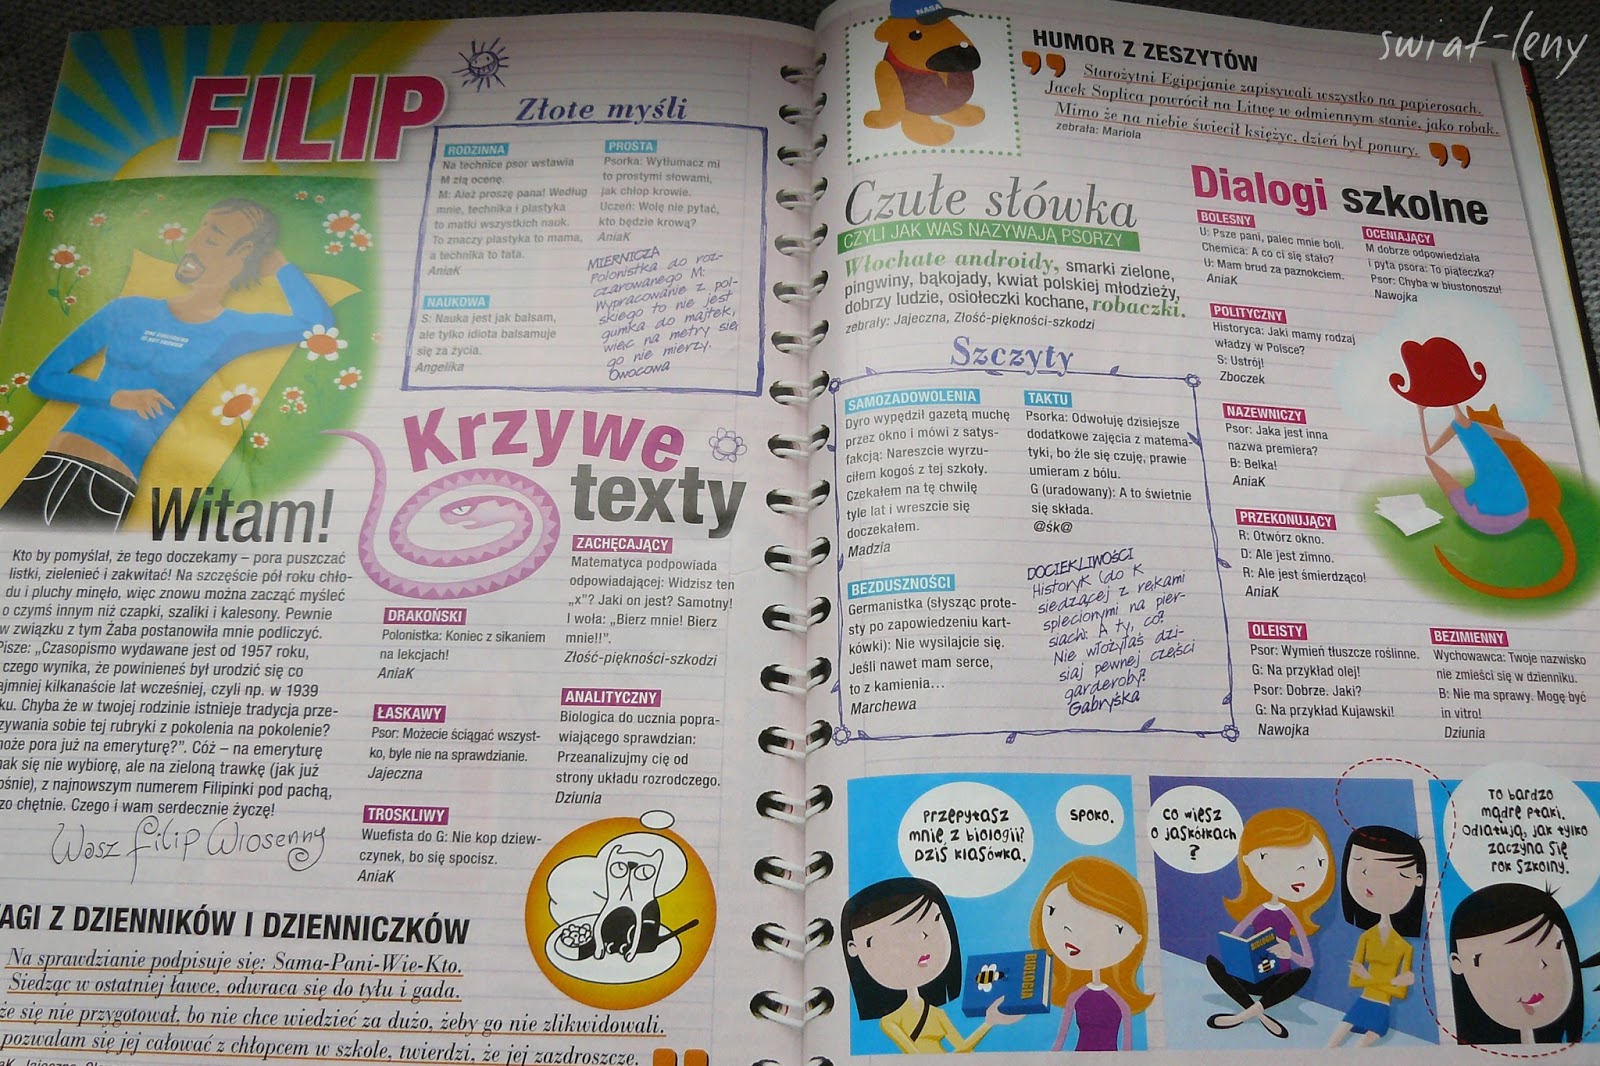 FILIP
Witam!
Kto by pomyślał, że tego doczekamy – pora puszczać
listki, zielenieć i zakwitać! Na szczęście pół roku chło-
du i pluchy minęło, więc znowu można zacząć myśleć
o czymś innym niż czapki, szaliki i kalesony. Pewnie
w związku z tym Żaba postanowiła mnie podliczyć.
Pisze: „Czasopismo wydawane jest od 1957 roku,
czego wynika, że powinieneś był urodzić się co
ajmniej kilkanaście lat wcześniej, czyli np. w 1939
ku. Chyba że w twojej rodzinie istnieje tradycja prze-
zywania sobie tej rubryki z pokolenia na pokolenie?
może pora już na emeryturę?”. Cóż – na emeryturę
nak się nie wybiorę, ale na zieloną trawkę (jak już
ośnie), z najnowszym numerem Filipinki pod pachą,
zo chętnie. Czego i wam serdecznie życzę!
Wasz Filip Wiosenny
Złote myśli
RODZINNA
Na technice psor wstawia
M złą ocenę.
M: Ależ proszę pana! Według
mnie, technika i plastyka
to matki wszystkich nauk.
To znaczy plastyka to mama,
a technika to tata.
AniaK
NAUKOWA
S: Nauka jest jak balsam,
ale tylko idiota balsamuje
się za życia.
Angelika
PROSTA
Psorka: Wytłumacz mi
to prostymi słowami,
jak chłop krowie.
Uczeń: Wolę nie pytać,
kto będzie krową?
AniaK
MIERNICZA
Polonistka do roz-
czarowanego M:
Wypracowanie z pol-
skiego to nie jest
gumka do majtek,
więc na metry się
go nie mierzy.
Owocowa
Krzywe
texty
DRAKOŃSKI
Polonistka: Koniec z sikaniem
na lekcjach!
AniaK
ŁASKAWY
Psor: Możecie ściągać wszyst-
ko, byle nie na sprawdzianie.
Jajeczna
TROSKLIWY
Wuefista do G: Nie kop dziew-
czynek, bo się spocisz.
AniaK
ZACHĘCAJĄCY
Matematyca podpowiada
odpowiadającej: Widzisz ten
„x”? Jaki on jest? Samotny!
I woła: „Bierz mnie! Bierz
mnie!!”.
Złość-piękności-szkodzi
ANALITYCZNY
Biologica do ucznia popra-
wiającego sprawdzian:
Przeanalizujmy cię od
strony układu rozrodczego.
Dziunia
AGI Z DZIENNIKÓW I DZIENNICZKÓW
Na sprawdzianie podpisuje się: Sama-Pani-Wie-Kto.
Siedząc w ostatniej ławce, odwraca się do tyłu i gada.
że się nie przygotował, bo nie chce wiedzieć za dużo, żeby go nie zlikwidowali.
pozwalam się jej całować z chłopcem w szkole, twierdzi, że jej zazdroszczę.
NASA
HUMOR Z ZESZYTÓW
Starożytni Egipcjanie zapisywali wszystko na papierosach.
Jacek Soplica powrócił na Litwę w odmiennym stanie, jako robak.
Mimo że na niebie świecił księżyc, dzień był ponury.
zebrała: Mariola
Czułe słówka
CZYLI JAK WAS NAZYWAJĄ PSORZY
Włochate androidy, smarki zielone,
pingwiny, bąkojady, kwiat polskiej młodzieży,
dobrzy ludzie, osiołeczki kochane, robaczki.
zebrały: Jajeczna, Złość-piękności-szkodzi
Szczyty
SAMOZADOWOLENIA
Dyro wypędził gazetą muchę
przez okno i mówi z satys-
fakcją: Nareszcie wyrzu-
ciłem kogoś z tej szkoły.
Czekałem na tę chwilę
tyle lat i wreszcie się
doczekałem.
Madzia
BEZDUSZNOŚCI
Germanistka (słysząc prote-
sty po zapowiedzeniu kart-
kówki): Nie wysilajcie się.
Jeśli nawet mam serce,
to z kamienia...
Marchewa
TAKTU
Psorka: Odwołuję dzisiejsze
dodatkowe zajęcia z matema-
tyki, bo źle się czuję, prawie
umieram z bólu.
G (uradowany): A to świetnie
się składa.
@śk@
DOCIEKLIWOŚCI
Historyk (do K
siedzącej z rękami
splecionymi na pier-
siach: A ty, co?
Nie włożyłaś dzi-
siaj pewnej części
garderoby?
Gabryśka
Dialogi szkolne
BOLESNY
U: Psze pani, palec mnie boli.
Chemica: A co ci się stało?
U: Mam brud za paznokciem.
AniaK
POLITYCZNY
Historyca: Jaki mamy rodzaj
władzy w Polsce?
S: Ustrój!
Zboczek
NAZEWNICZY
Psor: Jaka jest inna
nazwa premiera?
B: Belka!
AniaK
PRZEKONUJĄCY
R: Otwórz okno.
D: Ale jest zimno.
R: Ale jest śmierdząco!
AniaK
OLEISTY
Psor: Wymień tłuszcze roślinne.
G: Na przykład olej!
Psor: Dobrze. Jaki?
G: Na przykład Kujawski!
Nawojka
OCENIAJĄCY
M dobrze odpowiedziała
i pyta psora: To piąteczka?
Psor: Chyba w biustonoszu!
Nawojka
BEZIMIENNY
Wychowawca: Twoje nazwisko
nie zmieści się w dzienniku.
B: Nie ma sprawy. Mogę być
in vitro!
Dziunia
PRZEPYTASZ
MNIE Z BIOLOGII?
DZIŚ KLASÓWKA.
SPOKO.
BIOLOGIA
CO WIESZ
O JASKÓŁKACH
?
BIOLOGIA
TO BARDZO
MĄDRE PTAKI.
ODLATUJĄ, JAK TYLKO
ZACZYNA SIĘ
ROK SZKOLNY.
swiat-leny